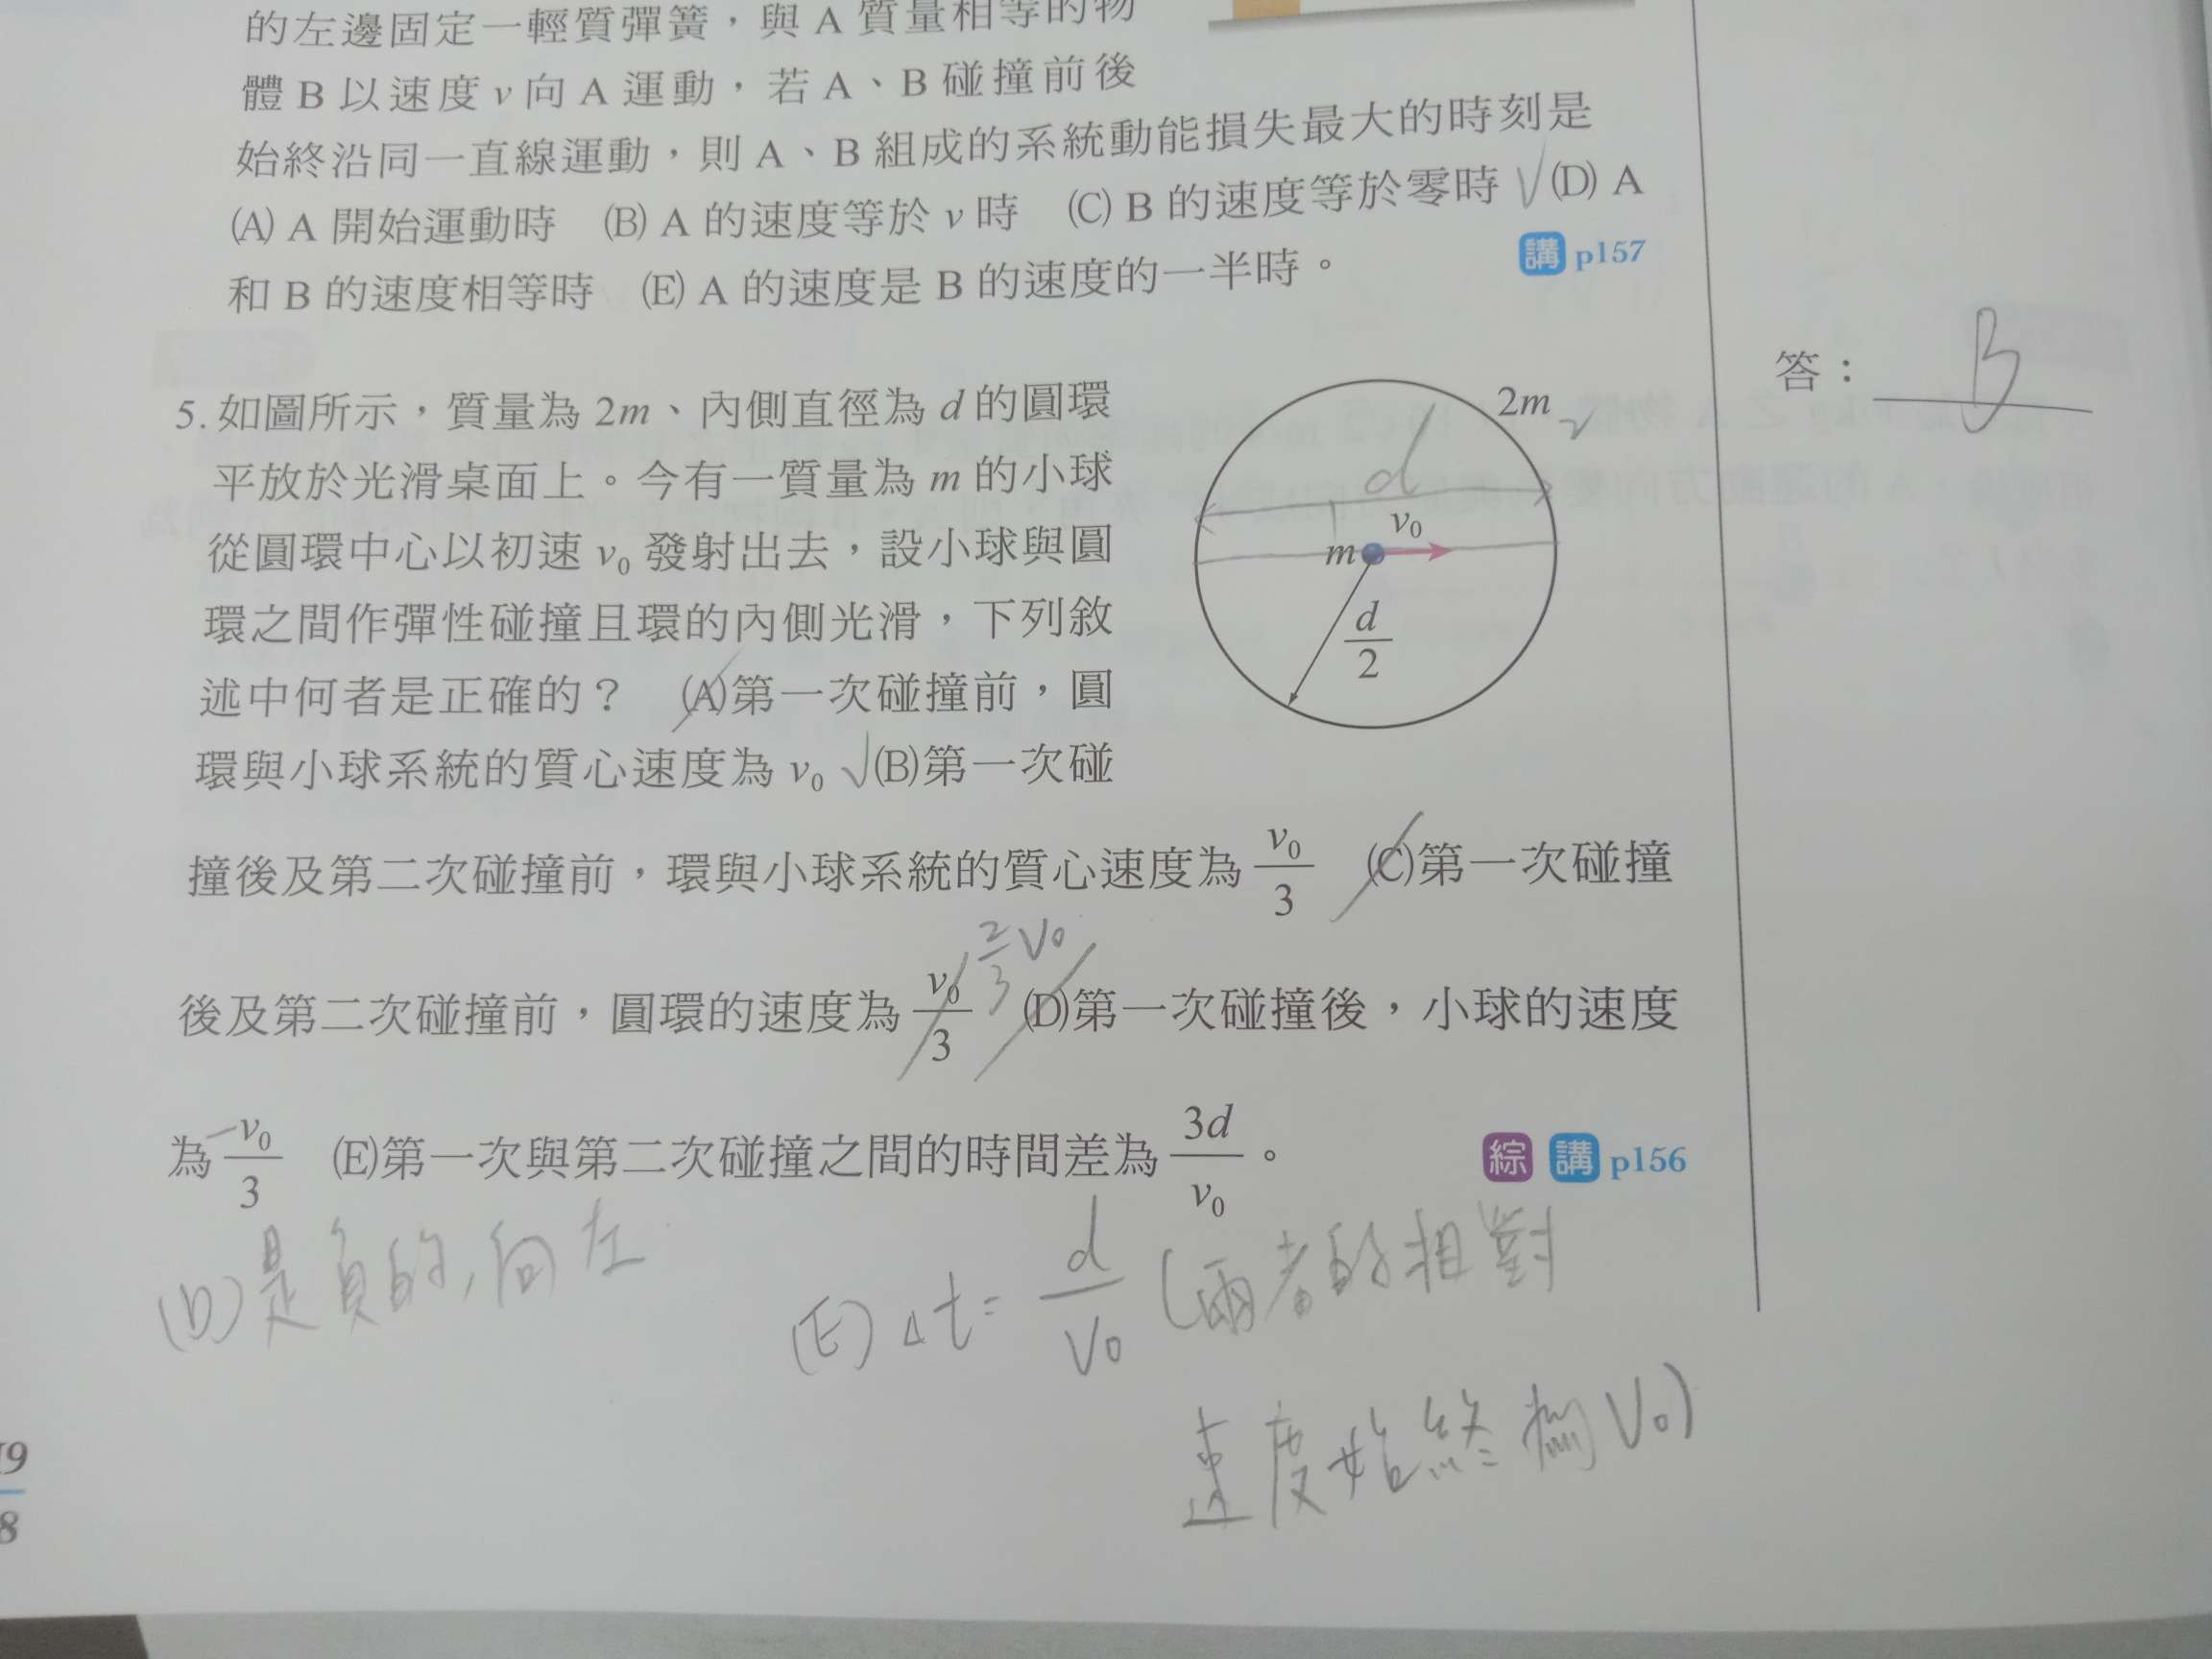 的左邊固定一輕質彈簧，與 A 質量相等的物
體 B 以速度 v 向 A 運動，若 A、B 碰撞前後
始終沿同一直線運動，則 A、B 組成的系統動能損失最大的時刻是
(A) A 開始運動時 (B) A 的速度等於 v 時 (C) B 的速度等於零時 √(D) A
和 B 的速度相等時 (E) A 的速度是 B 的速度的一半時。 講 p157
答： B
5. 如圖所示，質量為 2m、內側直徑為 d 的圓環
平放於光滑桌面上。今有一質量為 m 的小球
從圓環中心以初速 v₀ 發射出去，設小球與圓
環之間作彈性碰撞且環的內側光滑，下列敘
述中何者是正確的？ (A)第一次碰撞前，圓
環與小球系統的質心速度為 v₀ √(B)第一次碰
撞後及第二次碰撞前，環與小球系統的質心速度為 v₀/3 (C)第一次碰撞
後及第二次碰撞前，圓環的速度為 v₀/3 2/3 V₀ (D)第一次碰撞後，小球的速度
為 −v₀/3 (E)第一次與第二次碰撞之間的時間差為 3d/v₀。 綜 講 p156
2m
d
v₀
m
d/2
(D)是負的,向左
(E) Δt= d/V₀ (兩者的相對
速度始終為V₀)
19
8